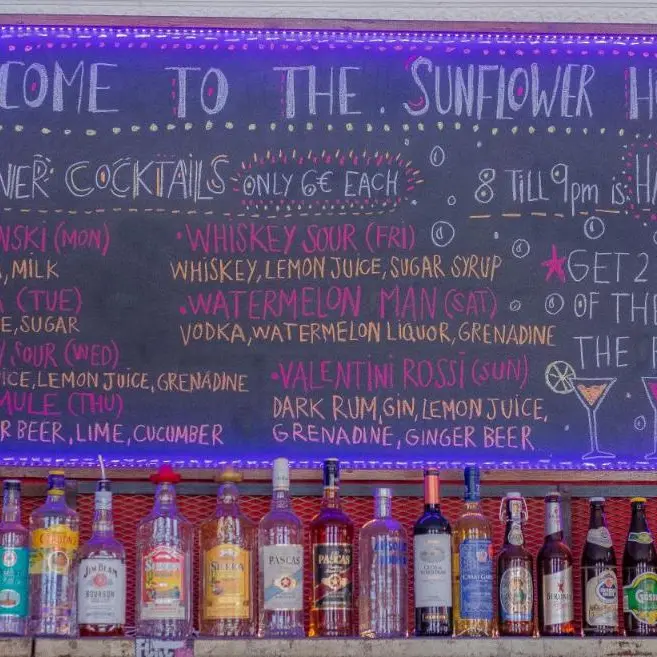 COME TO THE SUNFLOWER H
NER COCKTAILS ONLY 6€ EACH 8 TILL 9pm is HA
NSKI (MON) • WHISKEY SOUR (FRI)
, MILK WHISKEY, LEMON JUICE, SUGAR SYRUP GET 2
(TUE) • WATERMELON MAN (SAT) OF THE
E, SUGAR VODKA, WATERMELON LIQUOR, GRENADINE
SOUR (WED) THE
ICE, LEMON JUICE, GRENADINE • VALENTINI ROSSI (SUN)
MULE (THU) DARK RUM, GIN, LEMON JUICE,
R BEER, LIME, CUCUMBER GRENADINE, GINGER BEER
GORDON'S JIM BEAM SIERRA SIERRA PASCAS PASCAS ABSOLUT
BOURBON